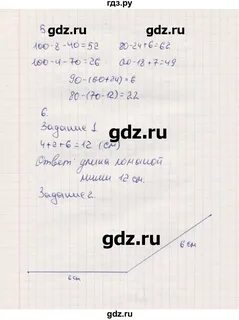 gdz.ru gdz.ru
5.
100-8-40=52 80-24+6=62
100-4-70=26 60-18+7=49
90-(60+24)=6
80-(70-12)=22
gdz.ru
6.
Задание 1
4+2+6=12 (см)
Ответ длина ломаной
линии 12 см.
Задание 2.
gdz.ru
6 см
6 см
gdz.ru